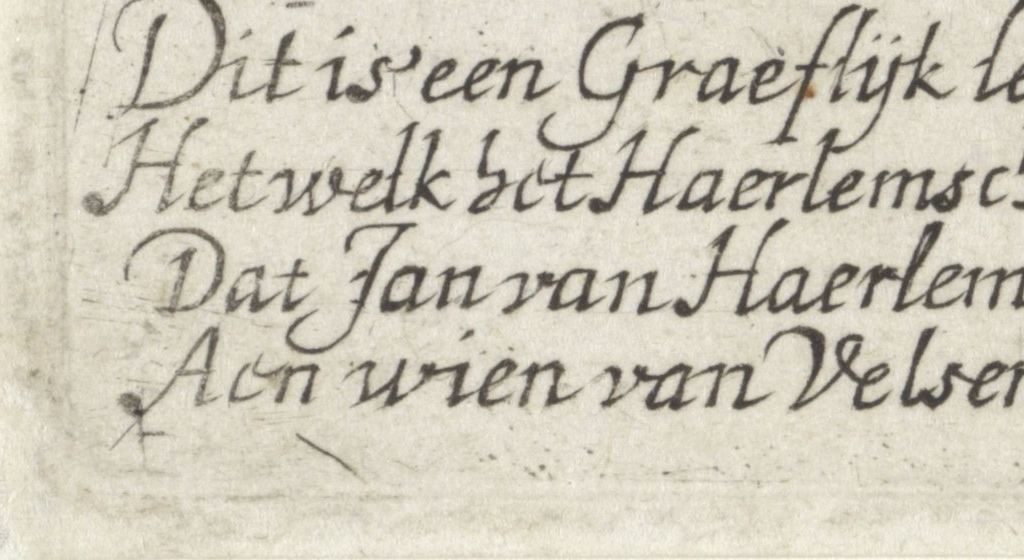 Dit is een Graeflijk le
Het welk het Haerlemsc
Dat Jan van Haerlem
Aen wien van Velsen